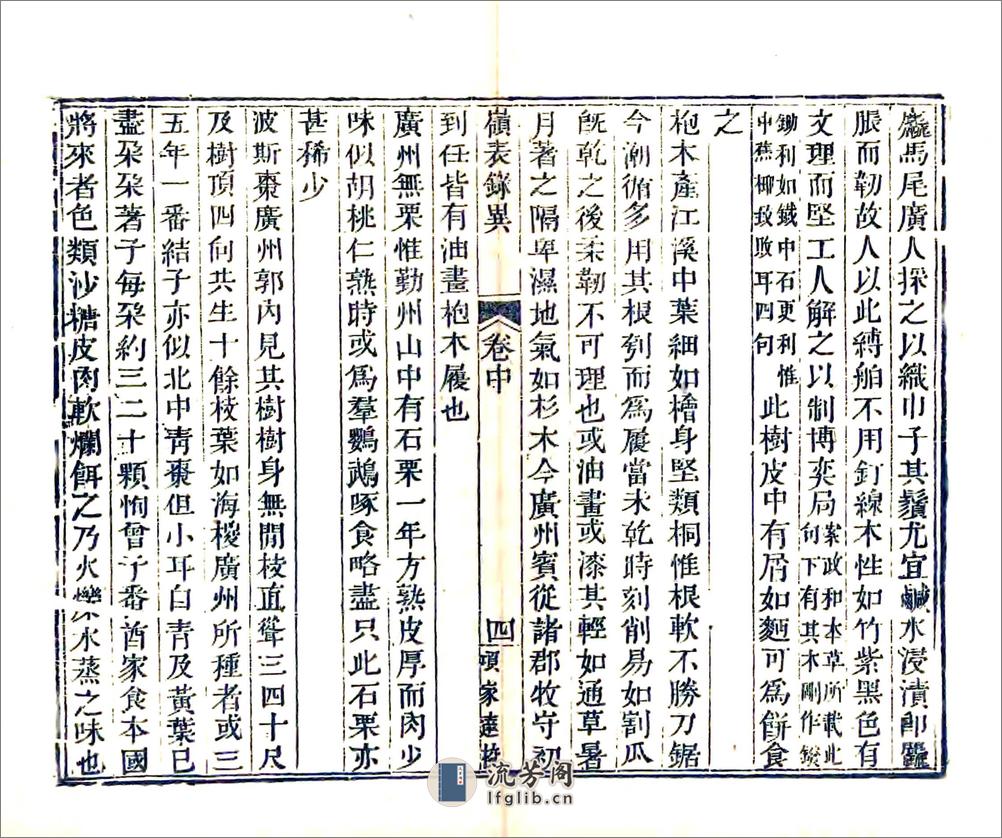 麤馬尾廣人採之以織巾子其鬚尤宜鹹水浸漬卽麤
脹而韌故人以此縛舶不用釘線木性如竹紫黑色有
文理而堅工人解之以制博奕局案政和本草所載此句下有其木剛作鋘
鋤利如鐵中石更利惟中蕉椰致敗耳四句此樹皮中有屑如麵可爲餅食
之
枹木產江溪中葉細如檜身堅類桐惟根軟不勝刀鋸
今潮循多用其根刳而爲履當未乾時刻削易如割瓜
旣乾之後柔韌不可理也或油畫或漆其輕如通草暑
月著之隔卑濕地氣如杉木今廣州賓從諸郡牧守初
嶺表錄異 卷中 四 項家達校
到任皆有油畫枹木履也
廣州無栗惟勤州山中有石栗一年方熟皮厚而肉少
味似胡桃仁熟時或爲羣鸚鵡啄食略盡只此石栗亦
甚稀少
波斯棗廣州郭內見其樹樹身無閒枝直聳三四十尺
及樹頂四向共生十餘枝葉如海椶廣州所種者或三
五年一番結子亦似北中靑棗但小耳自青及黃葉已
盡朶朶著子每朶約三二十顆恂曾于番酋家食本國
將來者色類沙糖皮肉軟爛餌之乃火爍水蒸之味也
流芳阁
lfglib.cn